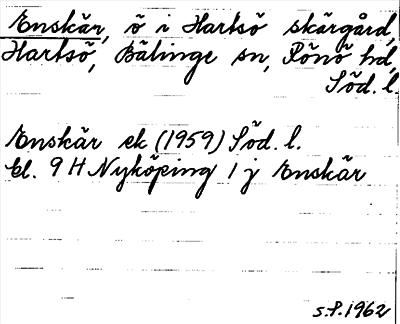 Enskär, ö i Hartsö skärgård,
Hartsö, Bälinge sn, Rönö hd,
Söd. l.
Enskär ek (1959) Söd. l.
bl. 9 H Nyköping 1 j Enskär
s.P. 1962